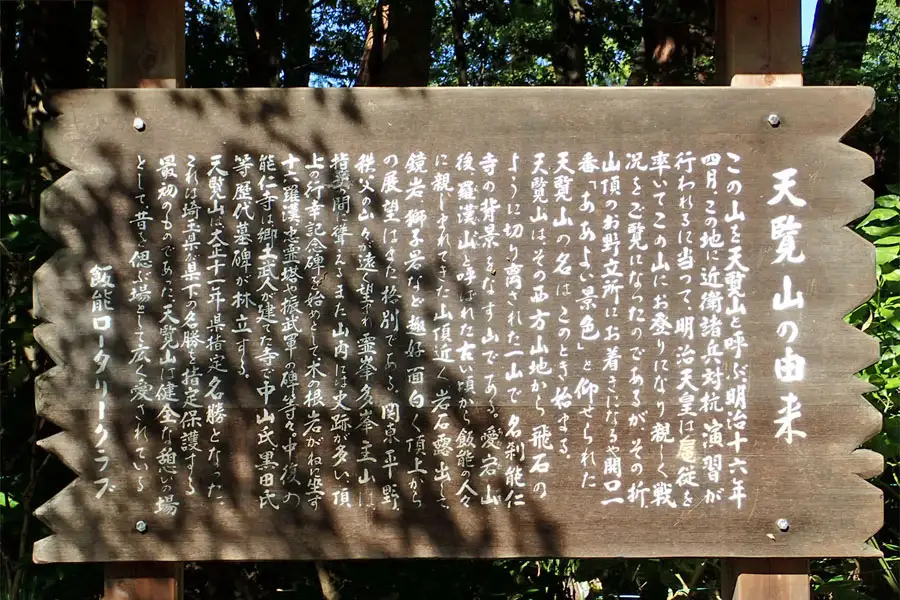 天覧山の由来
この山を天覧山と呼ぶ明治十六年
四月この地に近衛諸兵対抗演習が
行われるに当って明治天皇は扈従を
率いてこの山にお登りになり親しく戦
況をご覧になったのであるがその折
山頂のお野立所にお着きになるや開口一
番「ああよい景色」と仰せられた
天覧山の名はこのとき始まる
天覧山はその西方山地から飛石の
ように切り離された一山で名刹能仁
寺の背景をなす山である。愛宕山
後、羅漢山と呼ばれた古い頃から飯能の人々
に親しまれてきた山頂近く岩石露出して
鏡岩、獅子岩など趣好面白く頂上から
の展望はまた格別である。関東平野
秩父の山々が遠望され霊峯多峯主山は
指呼の間に聳えるまた山内には史跡が多い、頂
上の行幸記念碑を始めとして木の根岩がねに坐す
十六羅漢忠霊塔や振武軍の碑等々。中復の
能仁寺は郷土武人が建てた寺で中山氏黒田氏
等歴代の墓碑が林立する。
天覧山は大正十一年県指定名勝となった
これは埼玉県が県下の名勝を指定保護する
最初のものであった天覧山は健全な憩いの場
として昔を偲ぶ場として広く愛されている
飯能ロータリークラブ